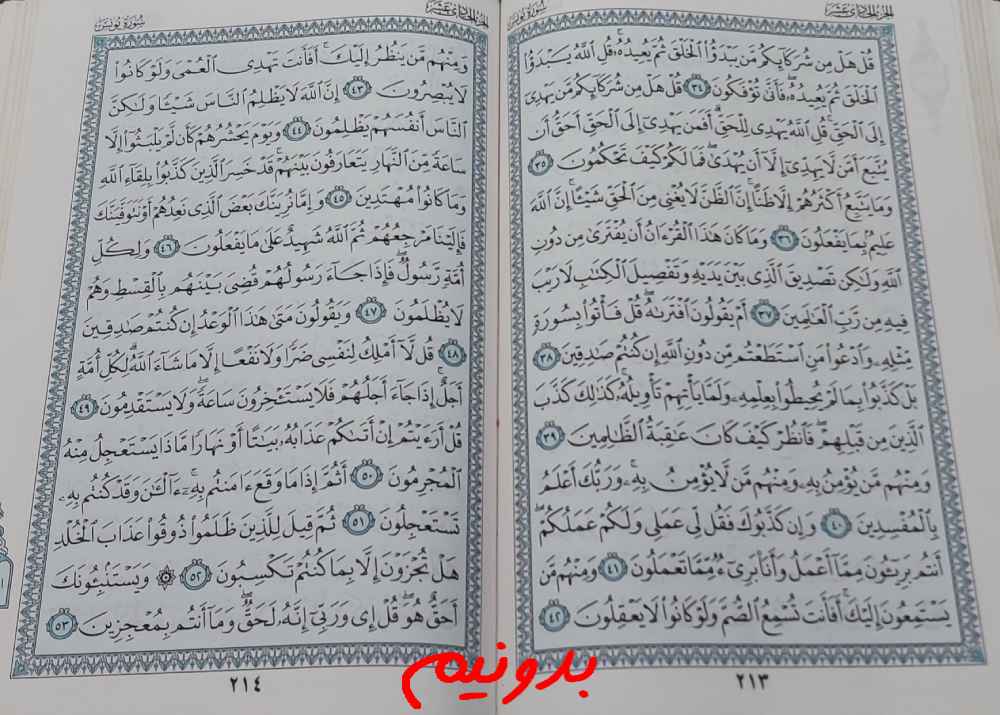 الجزء الحادي عشر
سورة يونس
قُلْ هَلْ مِن شُرَكَآئِكُم مَّن يَبْدَؤُا۟ ٱلْخَلْقَ ثُمَّ يُعِيدُهُۥ ۚ قُلِ ٱللَّهُ يَبْدَؤُا۟
ٱلْخَلْقَ ثُمَّ يُعِيدُهُۥ ۖ فَأَنَّىٰ تُؤْفَكُونَ ٣٤ قُلْ هَلْ مِن شُرَكَآئِكُم مَّن يَهْدِىٓ
إِلَى ٱلْحَقِّ ۚ قُلِ ٱللَّهُ يَهْدِى لِلْحَقِّ ۗ أَفَمَن يَهْدِىٓ إِلَى ٱلْحَقِّ أَحَقُّ أَن
يُتَّبَعَ أَمَّن لَّا يَهِدِّىٓ إِلَّآ أَن يُهْدَىٰ ۖ فَمَا لَكُمْ كَيْفَ تَحْكُمُونَ ٣٥
وَمَا يَتَّبِعُ أَكْثَرُهُمْ إِلَّا ظَنًّا ۚ إِنَّ ٱلظَّنَّ لَا يُغْنِى مِنَ ٱلْحَقِّ شَيْـًٔا ۚ إِنَّ ٱللَّهَ
عَلِيمٌۢ بِمَا يَفْعَلُونَ ٣٦ وَمَا كَانَ هَـٰذَا ٱلْقُرْءَانُ أَن يُفْتَرَىٰ مِن دُونِ
ٱللَّهِ وَلَـٰكِن تَصْدِيقَ ٱلَّذِى بَيْنَ يَدَيْهِ وَتَفْصِيلَ ٱلْكِتَـٰبِ لَا رَيْبَ
فِيهِ مِن رَّبِّ ٱلْعَـٰلَمِينَ ٣٧ أَمْ يَقُولُونَ ٱفْتَرَىٰهُ ۖ قُلْ فَأْتُوا۟ بِسُورَةٍ
مِّثْلِهِۦ وَٱدْعُوا۟ مَنِ ٱسْتَطَعْتُم مِّن دُونِ ٱللَّهِ إِن كُنتُمْ صَـٰدِقِينَ ٣٨
بَلْ كَذَّبُوا۟ بِمَا لَمْ يُحِيطُوا۟ بِعِلْمِهِۦ وَلَمَّا يَأْتِهِمْ تَأْوِيلُهُۥ ۚ كَذَٰلِكَ كَذَّبَ
ٱلَّذِينَ مِن قَبْلِهِمْ ۖ فَٱنظُرْ كَيْفَ كَانَ عَـٰقِبَةُ ٱلظَّـٰلِمِينَ ٣٩
وَمِنْهُم مَّن يُؤْمِنُ بِهِۦ وَمِنْهُم مَّن لَّا يُؤْمِنُ بِهِۦ ۚ وَرَبُّكَ أَعْلَمُ
بِٱلْمُفْسِدِينَ ٤٠ وَإِن كَذَّبُوكَ فَقُل لِّى عَمَلِى وَلَكُمْ عَمَلُكُمْ ۖ
أَنتُم بَرِيٓـُٔونَ مِمَّآ أَعْمَلُ وَأَنَا۠ بَرِىٓءٌ مِّمَّا تَعْمَلُونَ ٤١ وَمِنْهُم مَّن
يَسْتَمِعُونَ إِلَيْكَ ۚ أَفَأَنتَ تُسْمِعُ ٱلصُّمَّ وَلَوْ كَانُوا۟ لَا يَعْقِلُونَ ٤٢
٢١٣
الجزء الحادي عشر
سورة يونس
وَمِنْهُم مَّن يَنظُرُ إِلَيْكَ ۚ أَفَأَنتَ تَهْدِى ٱلْعُمْىَ وَلَوْ كَانُوا۟
لَا يُبْصِرُونَ ٤٣ إِنَّ ٱللَّهَ لَا يَظْلِمُ ٱلنَّاسَ شَيْـًٔا وَلَـٰكِنَّ
ٱلنَّاسَ أَنفُسَهُمْ يَظْلِمُونَ ٤٤ وَيَوْمَ يَحْشُرُهُمْ كَأَن لَّمْ يَلْبَثُوٓا۟ إِلَّا
سَاعَةً مِّنَ ٱلنَّهَارِ يَتَعَارَفُونَ بَيْنَهُمْ ۚ قَدْ خَسِرَ ٱلَّذِينَ كَذَّبُوا۟ بِلِقَآءِ ٱللَّهِ
وَمَا كَانُوا۟ مُهْتَدِينَ ٤٥ وَإِمَّا نُرِيَنَّكَ بَعْضَ ٱلَّذِى نَعِدُهُمْ أَوْ نَتَوَفَّيَنَّكَ
فَإِلَيْنَا مَرْجِعُهُمْ ثُمَّ ٱللَّهُ شَهِيدٌ عَلَىٰ مَا يَفْعَلُونَ ٤٦ وَلِكُلِّ
أُمَّةٍ رَّسُولٌ ۖ فَإِذَا جَآءَ رَسُولُهُمْ قُضِىَ بَيْنَهُم بِٱلْقِسْطِ وَهُمْ
لَا يُظْلَمُونَ ٤٧ وَيَقُولُونَ مَتَىٰ هَـٰذَا ٱلْوَعْدُ إِن كُنتُمْ صَـٰدِقِينَ
٤٨ قُل لَّآ أَمْلِكُ لِنَفْسِى ضَرًّا وَلَا نَفْعًا إِلَّا مَا شَآءَ ٱللَّهُ ۗ لِكُلِّ أُمَّةٍ
أَجَلٌ ۚ إِذَا جَآءَ أَجَلُهُمْ فَلَا يَسْتَـْٔخِرُونَ سَاعَةً ۖ وَلَا يَسْتَقْدِمُونَ ٤٩
قُلْ أَرَءَيْتُمْ إِنْ أَتَىٰكُمْ عَذَابُهُۥ بَيَـٰتًا أَوْ نَهَارًا مَّاذَا يَسْتَعْجِلُ مِنْهُ
ٱلْمُجْرِمُونَ ٥٠ أَثُمَّ إِذَا مَا وَقَعَ ءَامَنتُم بِهِۦٓ ۚ ءَآلْـَٔـٰنَ وَقَدْ كُنتُم بِهِۦ
تَسْتَعْجِلُونَ ٥١ ثُمَّ قِيلَ لِلَّذِينَ ظَلَمُوا۟ ذُوقُوا۟ عَذَابَ ٱلْخُلْدِ
هَلْ تُجْزَوْنَ إِلَّا بِمَا كُنتُمْ تَكْسِبُونَ ٥٢ ۞ وَيَسْتَنۢبِـُٔونَكَ
أَحَقٌّ هُوَ ۖ قُلْ إِى وَرَبِّىٓ إِنَّهُۥ لَحَقٌّ ۖ وَمَآ أَنتُم بِمُعْجِزِينَ ٥٣
٢١٤
بدونیم